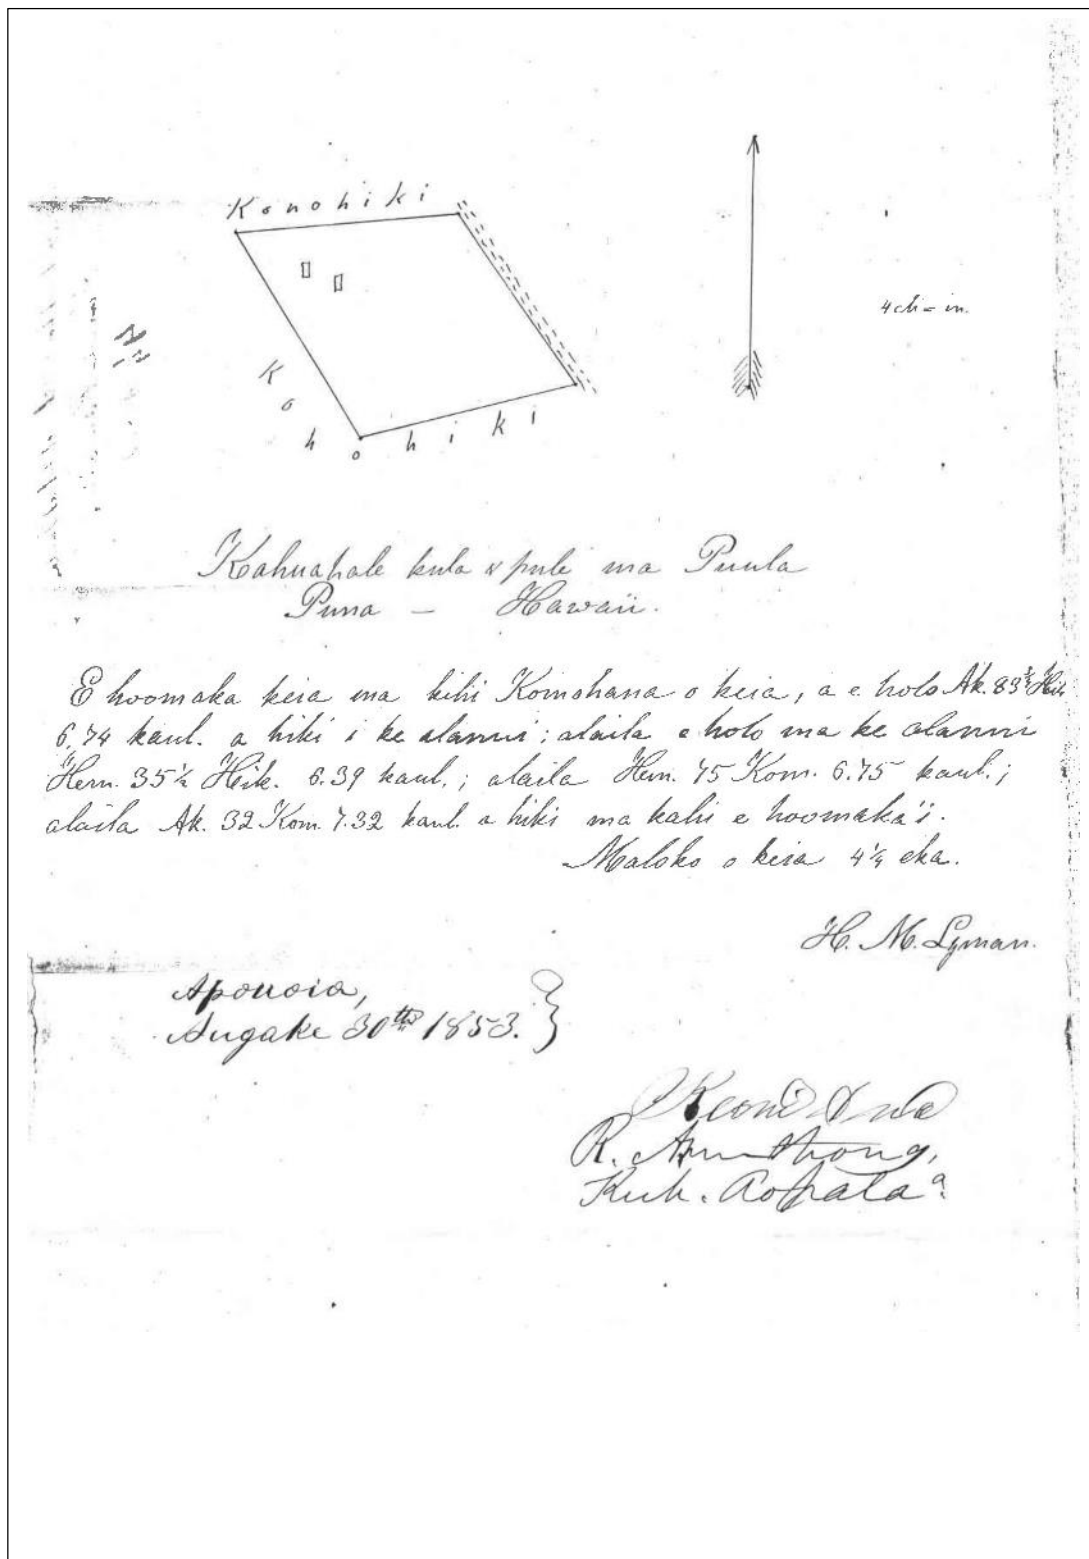 Konohiki
4 ch = in.
Kohohiki
Kahuahale kula & pule ma Puula
Puna — Hawaii.
E hoomaka keia ma kihi Komohana o keia, a e holo Ak. 83¾ Hik.
6.74 kaul. a hiki i ke alanui; alaila e holo ma ke alanui
Hem. 35½ Hik. 6.39 kaul.; alaila Hem. 75 Kom. 6.75 kaul.;
alaila Ak. 32 Kom. 7.32 kaul. a hiki ma kahi e hoomaka'i.
Maloko o keia 4¼ eka.
H. M. Lyman.
Aponoia,
Augake 30th 1853.
Keoni Ana
R. Armstrong,
Kuh.